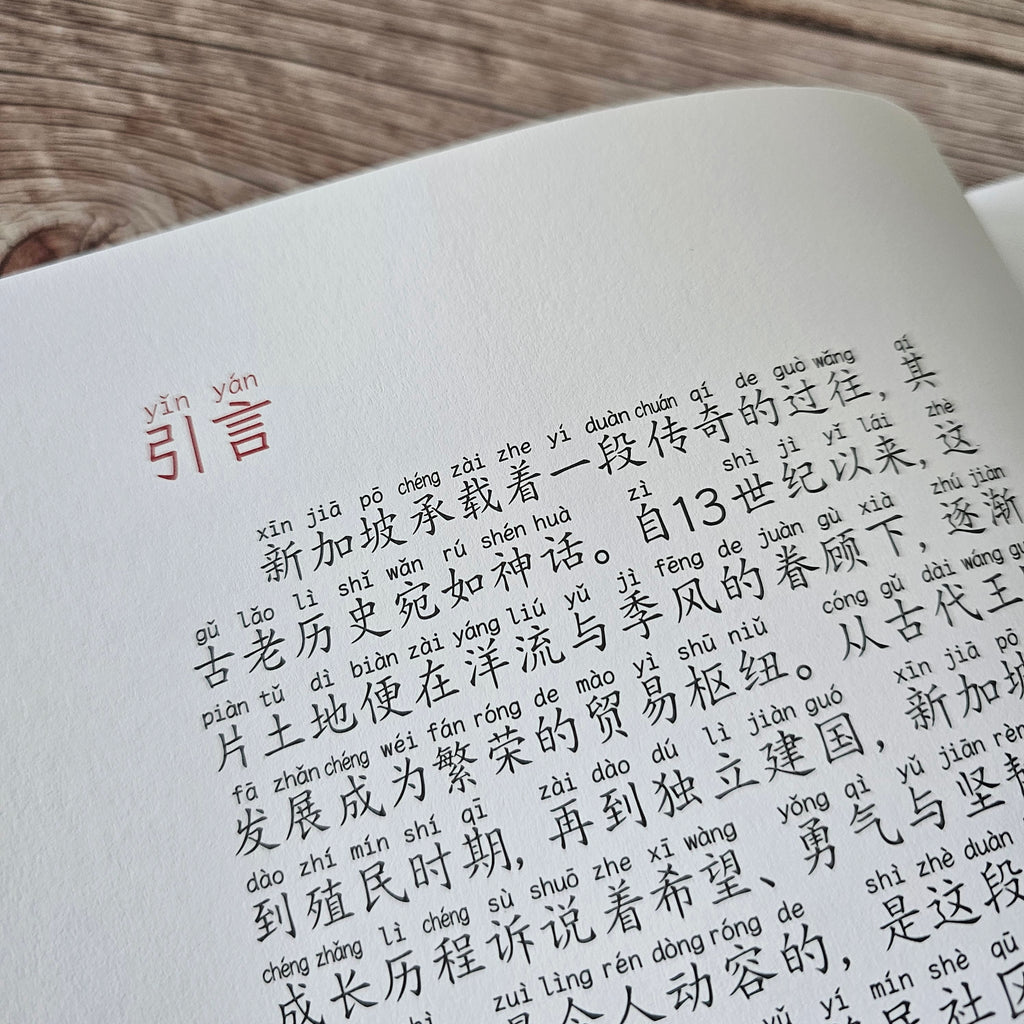 yǐn yán
引言
xīn jiā pō chéng zài zhe yí duàn chuán qí de guò wǎng qí
新加坡承载着一段传奇的过往，其
gǔ lǎo lì shǐ wǎn rú shén huà zì shì jì yǐ lái zhè
古老历史宛如神话。自13世纪以来，这
piàn tǔ dì biàn zài yáng liú yǔ jì fēng de juàn gù xià zhú jiàn
片土地便在洋流与季风的眷顾下，逐渐
fā zhǎn chéng wéi fán róng de mào yì shū niǔ cóng gǔ dài wáng
发展成为繁荣的贸易枢纽。从古代王
dào zhí mín shí qī zài dào dú lì jiàn guó xīn jiā pō
到殖民时期，再到独立建国，新加坡
chéng zhǎng lì chéng sù shuō zhe xī wàng yǒng qì yǔ jiān rèn
成长历程诉说着希望、勇气与坚韧
zuì lìng rén dòng róng de shì zhè duàn
最令人动容的，是这段
yí mín shè qū
民社区